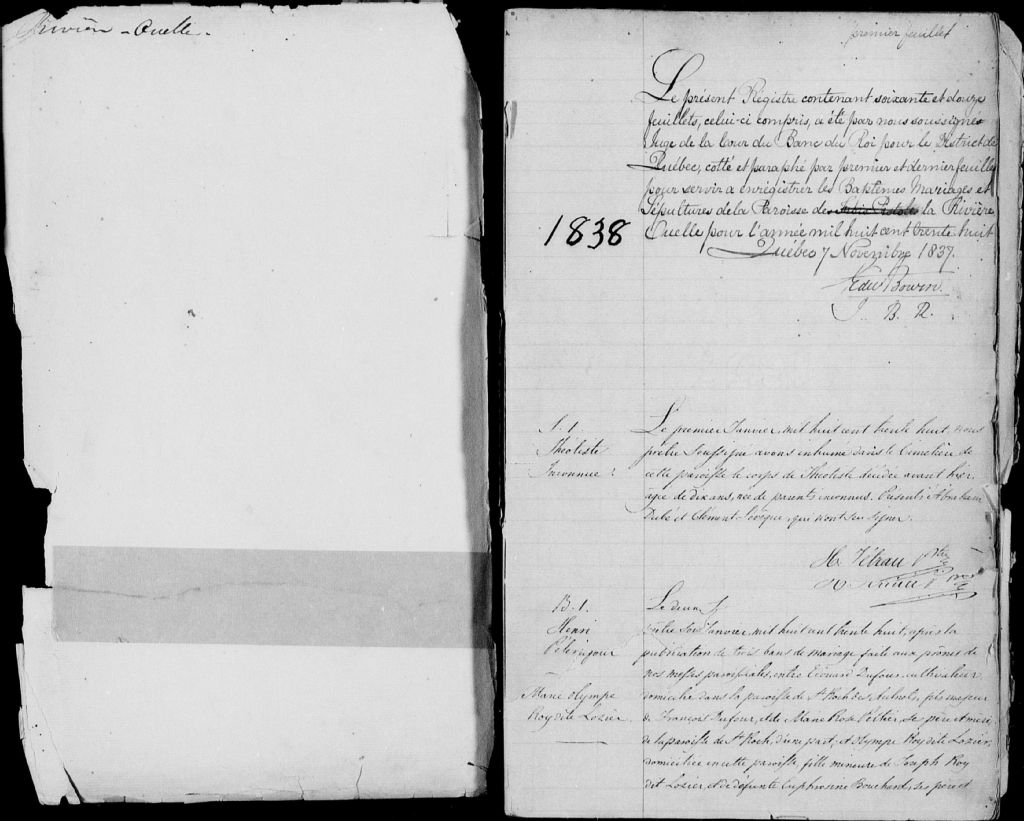 Rivière - Ouelle -
premier feuillet
Le présent Régistre contenant soixante et douze
feuillets, celui-ci compris, a été par nous soussigné
Juge de la Cour du Banc du Roi pour le District de
Québec, cotté et paraphé par premier et dernier feuillet
pour servir a enrégistrer les Baptêmes Mariages et
Sépultures de la Paroisse des la Rivière
Ouelle pour l'année mil huit cent trente huit
1838
Québec 7 Novembre 1837.
Edw Bowen
J. B. R.
S. 1
Théotiste
Inconnue
Le premier Janvier, mil huit cent trente huit, nous
prêtre Soussigné avons inhumé dans le Cimetière de
cette paroisse le corps de Théotiste décédée avant hier
agée de dix ans, née de parents inconnus. Présents Abraham
Dubé et Clément Lévêque, qui n'ont su signer.
H. Têtrau Ptre
B. 1.
Henri
Marie Olympe
Roy dite Lozier
Le deux
prêtre Sous Janvier, mil huit cent trente huit, après la
publication de trois bans de mariage faite aux prônes de
nos messes paroissiales, entre Edouard Dufour cultivateur
domicilié dans la paroisse de St Roch des Aulnets, fils majeur
de François Dufour, et de Marie Rose Peltier, ses père et mère
de la paroisse de St Roch, d'une part; et Olympe Roy dite Lozier,
domiciliée en cette paroisse fille mineure de Joseph Roy
dit Lozier, et de défunte Euphrosine Bouchard, ses père et